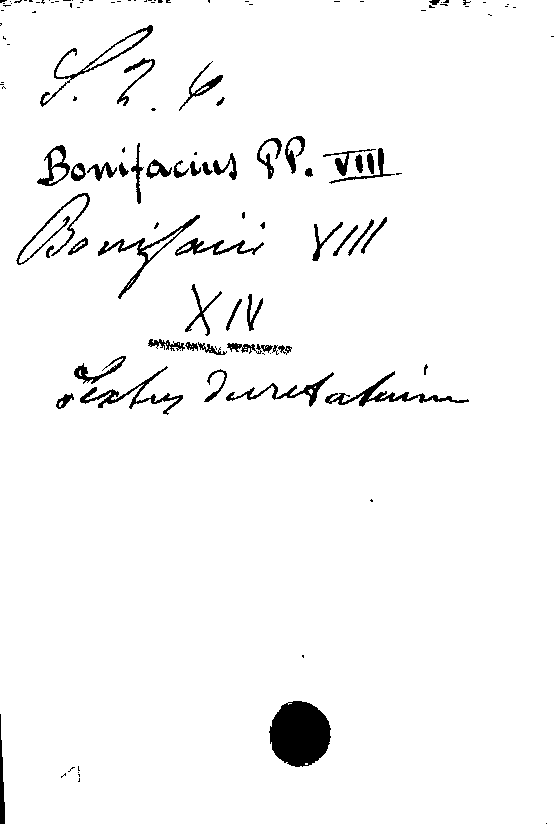 S. 2. 6.
Bonifacius PP. VIII
Bonifacii VIII
XIV
Sextus decretalium
1